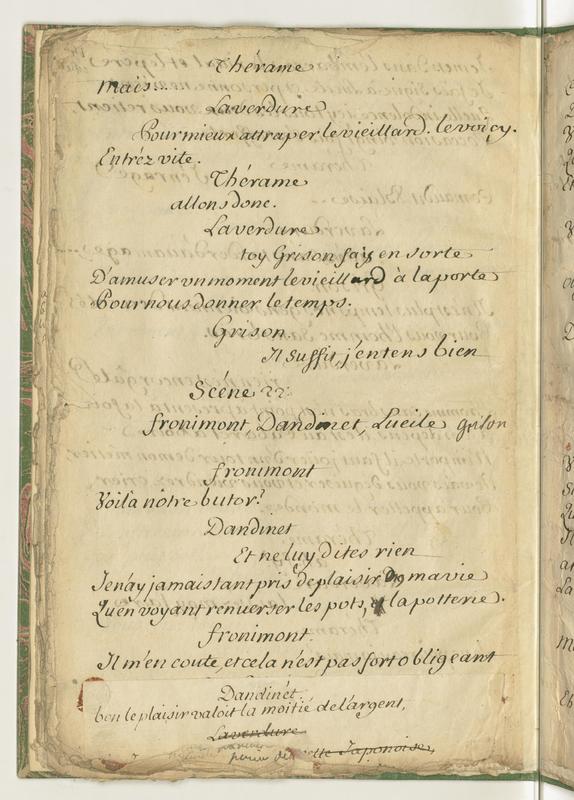 Thérame
mais...
Laverdure
Pour mieux attraper le vieillard. le voicy.
Entréz vite.
Thérame
allons donc.
Laverdure
toy Grison fais en sorte
D'amuser un moment le vieillard à la porte
Pour nous donner le temps.
Grison.
Il suffit, j'entens bien
Scéne 22:
fronimont, Dandinet, Lucile Grison
fronimont
Voila nôtre butor?
Dandinet
Et ne luy dites rien
Je n'ay jamais tant pris de plaisir De ma vie
Qu'en voyant renuerser les pots, et la potterie.
fronimont.
Il m'en coute, et cela n'est pas fort obligeant
Dandinét
bon le plaisir valoit la moitié de l'argent,
Laverdure
Japonoise,